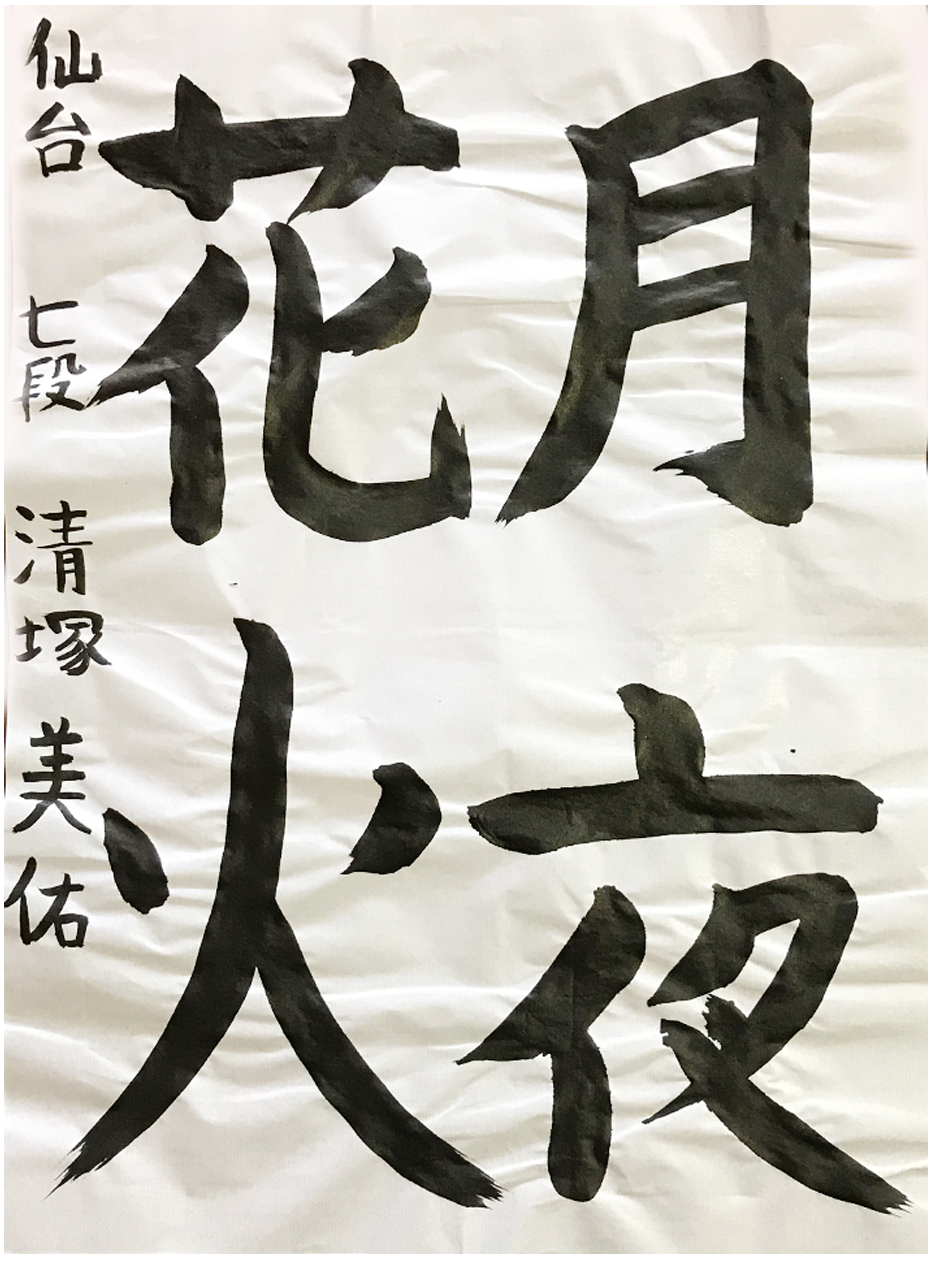 月夜
花火
仙台 七段 清塚 美佑